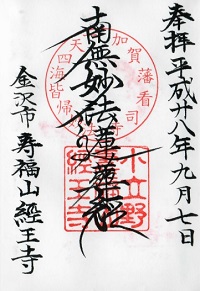 奉拝 平成廿八年九月七日
南無妙法蓮華経
金沢市 寿福山 経王寺
加賀藩看司
四海皆帰
小立野
経王寺